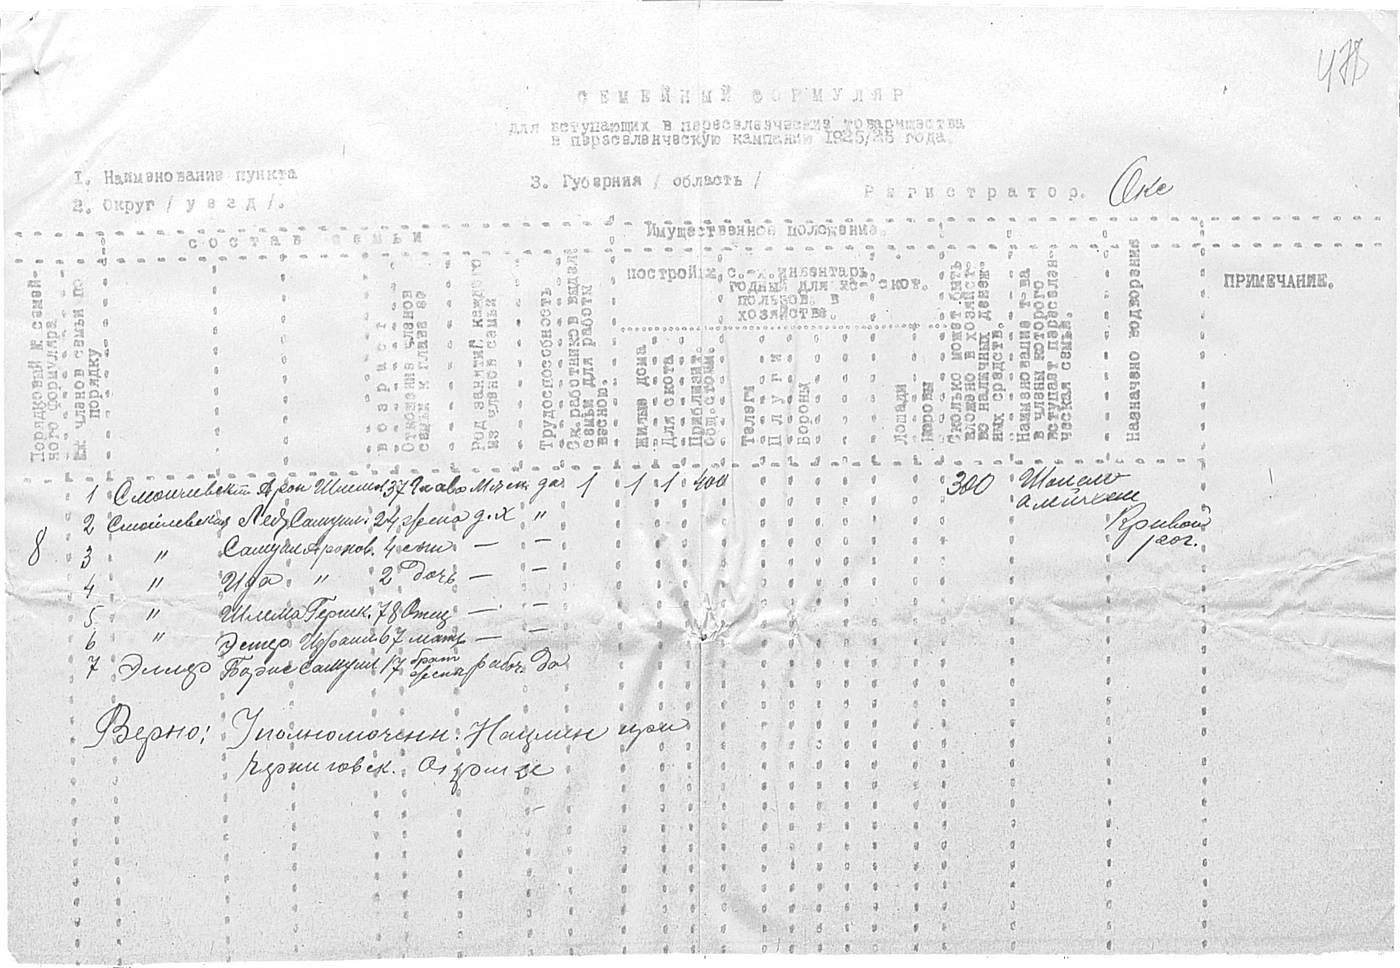 478
СЕМЕЙНЫЙ ФОРМУЛЯР
для вступающих в переселенческие товарищества
в переселенческую кампанию 1925/26 года.
1. Наименование пункта
3. Губерния / область /
Регистратор.
2. Округ / уезд /.
состав семьи
Имущественное положение.
Порядковый № семейного формуляра
№№ членов семьи по порядку
возраст
Отношение членов семьи к главе ее
Род занятий каждого из членов семьи
Трудоспособность
весною.
постройки
с.-х.инвентарь годный для использов. в хозяйстве.
скот.
Жилые дома
Для скота
Приблизит. общ.стоим.
Телеги
Плуги
Бороны
Лошади
Коровы
Сколько может быть вложено в хозяйство наличных денежных средств.
Наименование т-ва в члены которого вступает переселенческая семья.
Назначено водворение
ПРИМЕЧАНИЕ.
1 Арон 37 да 1 1 1 400 300
2 24 жена д.х "
Кривой рог.
8
3 " Самуил Аронов. 4 сын — —
4 " Ида " 2 дочь — —
5 " Шлема 78 Отец — —
6 " Эстер 67 мать — —
7 Борис Самуил 17 брат жены рабоч. да
Верно: Уполномоченн. Нацмен при
Черниговск.